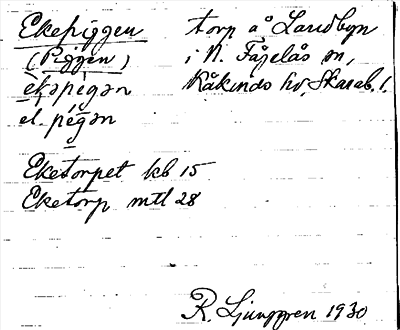 Ekepiggen torp å Landbyn
(Piggen) i N. Fågelås sn,
èkəpégən Kåkinds hd, Skarab. l.
el. pégən
Eketorpet kb 15
Eketorp mtl 28
R. Ljunggren 1930